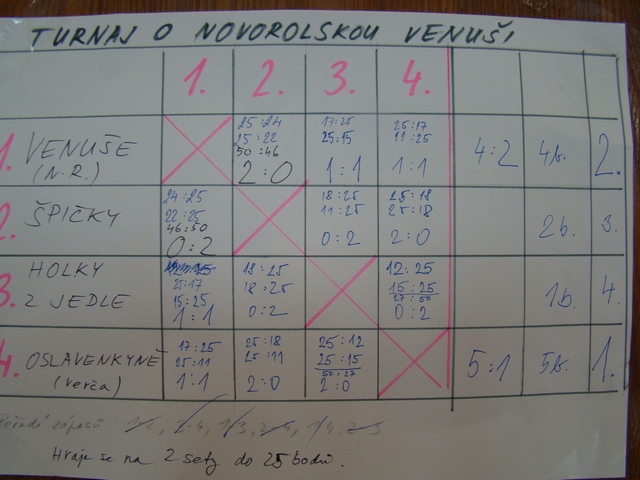 TURNAJ O NOVOROLSKOU VENUŠI
1. 2. 3. 4.
1. VENUŠE (N.R.)
25:24
25:22
50:46
2:0
17:25
25:15
1:1
25:17
11:25
1:1
4:2
4b.
2.
2. ŠPIČKY
24:25
22:25
46:50
0:2
18:25
11:25
0:2
25:18
25:18
2:0
2b.
3.
3. HOLKY Z JEDLE
25:17
15:25
1:1
18:25
18:25
0:2
12:25
15:25
27:50
0:2
1b.
4.
4. OSLAVENKYNĚ (Verča)
17:25
25:11
1:1
25:18
25:11
2:0
25:12
25:15
50:27
2:0
5:1
5b.
1.
Pořadí zápasů:
Hraje se na 2 sety do 25 bodů.